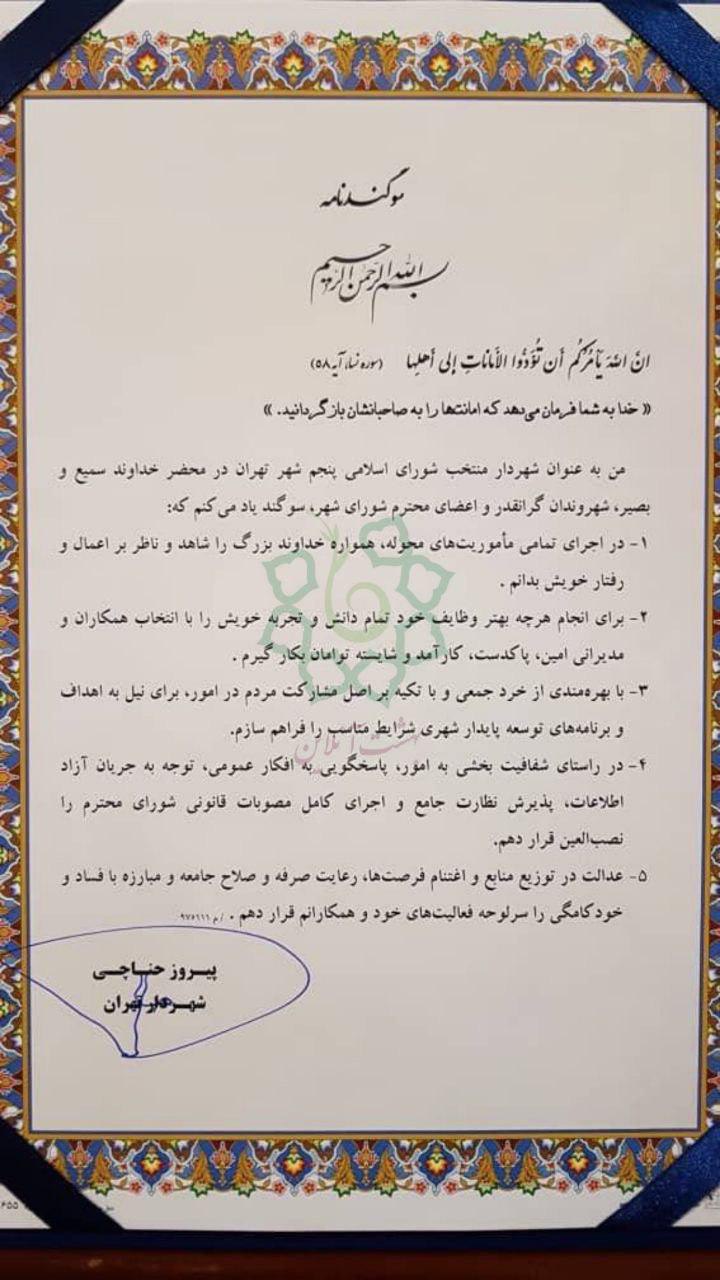 سوگندنامه
بسم الله الرحمن الرحیم
انَّ اللهَ یَأمُرُکُم أن تُؤَدُّوا الأماناتِ إلی أهلِها (سوره نساء، آیه ۵۸)
« خدا به شما فرمان می‌دهد که امانتها را به صاحبانشان بازگردانید. »
من به عنوان شهردار منتخب شورای اسلامی پنجم شهر تهران در محضر خداوند سمیع و
بصیر، شهروندان گرانقدر و اعضای محترم شورای شهر، سوگند یاد می‌کنم که:
۱- در اجرای تمامی مأموریت‌های محوله، همواره خداوند بزرگ را شاهد و ناظر بر اعمال و
رفتار خویش بدانم .
۲- برای انجام هرچه بهتر وظایف خود تمام دانش و تجربه خویش را با انتخاب همکاران و
مدیرانی امین، پاکدست، کارآمد و شایسته توامان بکار گیرم .
۳- با بهره‌مندی از خرد جمعی و با تکیه بر اصل مشارکت مردم در امور، برای نیل به اهداف
و برنامه‌های توسعه پایدار شهری شرایط مناسب را فراهم سازم.
بهشت آنلاین
۴- در راستای شفافیت بخشی به امور، پاسخگویی به افکار عمومی، توجه به جریان آزاد
اطلاعات، پذیرش نظارت جامع و اجرای کامل مصوبات قانونی شورای محترم را
نصب‌العین قرار دهم.
۵- عدالت در توزیع منابع و اغتنام فرصت‌ها، رعایت صرفه و صلاح جامعه و مبارزه با فساد و
خودکامگی را سرلوحه فعالیت‌های خود و همکارانم قرار دهم . /م ۹۷۶۱۱۱
پیروز حناچی
شهردار تهران